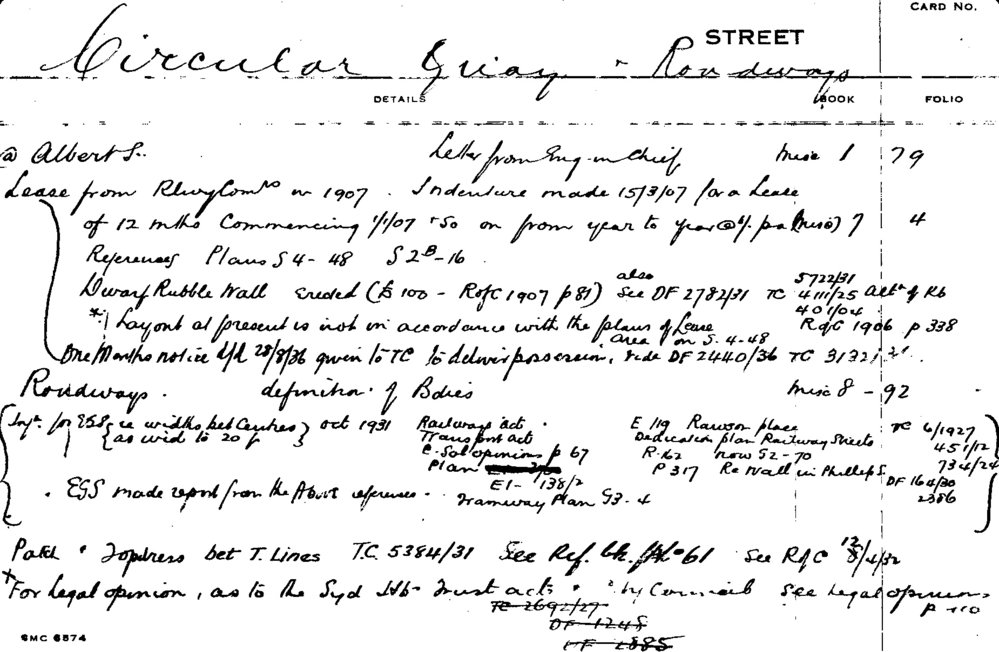 CARD NO.
STREET
Circular Quay - Roadways
DETAILS BOOK FOLIO
@ Albert S. Letter from Eng-in-Chief Misc 1 79
Lease from Rlwy Comrs in 1907. Indenture made 15/3/07 for a Lease
of 12 mths Commencing 1/1/07 & so on from year to year @ 1/. pa (Misc) 7 4
References Plans S4-48 S2B-16
Dwarf Rubble Wall Erected (£100 - RofC 1907 p81) also See DF 2782/31 TC 5722/31 4111/25 401/04 Altn of Kb
* Layout at present is not in accordance with the plans of Lease RofC 1906 p 338
area on S.4-48
One Months notice dd 28/8/36 given to TC to deliver possession, vide DF 2440/36 TC 3132
Roadways. definition of Bodies Misc 8 - 92
for EGS re widths bet Centres Oct 1931 Railways Act. E 119 Rawson place TC 6/1927
as wid to 20 f Transport Act Dedication plan Railway Streets 451/12
C. Sol opinions p 67 R.162 now S2-70 734/24
Plan P317 Re Wall in Phillip S. DF 164/30
E1- 138/2 2386
. EGS made report from the Above references.. Tramway Plan G3.4
Patch & Topdress bet T. Lines TC 5384/31 See Ref. bk. 61 See RofC 12/4/32
* For Legal opinion, as to the Syd Hb Trust acts by Council See Legal opinions
TC 2692/27 p 110
DF 1248
DF 2885
SMC 6574